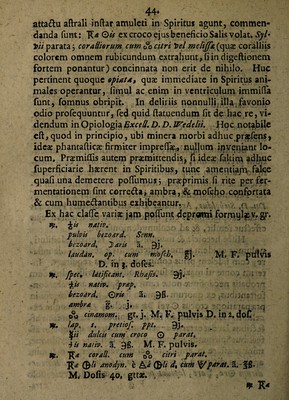 44.
attactu astrali instar amuleti in Spiritus agunt, commen-
danda sunt: ex croco ejus beneficio Salis volat. Syl-
vii parata; corallorum cum citri vel melissæ (quæ coralliis
colorem omnem rubicundum extrahunt, si in digestionem
fortem ponantur) concinnata non erit de nihilo. Huc
pertinent quoque opiata, quæ immediate in Spiritus ani-
males operantur, simul ac enim in ventriculum immissa
sunt, somnus obripit. In deliriis nonnulli illa favonio
odio prosequuntur, sed quid statuendum sit de hac re, vi-
dendum in Opiologia Excell. D. D. Wedelii. Hoc notabile
est, quod in principio, ubi minera morbi adhuc præsens,
ideæ phantasticæ firmiter impressæ, nullum inveniant lo-
cum. Præmissis autem præmittendis, si ideæ saltim adhuc
superficiarie hærent in Spiritibus, tunc amentiam falce
quasi una demetere possumus; præprimis si rite per fer-
mentationem sint correcta, ambra, & moscho confortata
& cum humectantibus exhibeantur.
Ex hac classe variæ jam possunt depromi formulæ v. gr.
℞. nativ.
pulvis bezoard. Senn.
bezoard. ā. ℈j.
laudan. op. cum mosch. gj. M. F. pulvis
D. in 3. doses.
℞. spec. lætificant. Rhasis. ℈j.
nativ. præp.
bezoard. ā. ℈ß.
ambræ g. j.
cinamom. gt. j. M. F. pulvis D. in 2. dos.
℞. lap. s. pretios. ppt. ℈j.
dulcis cum croco parat.
nativ. ā. ℈ß. M. F. pulvis.
℞. corall. cum citri parat.
anodyn. è d. cum parat. ā. ʒß.
M. Dosis 40. gttæ.